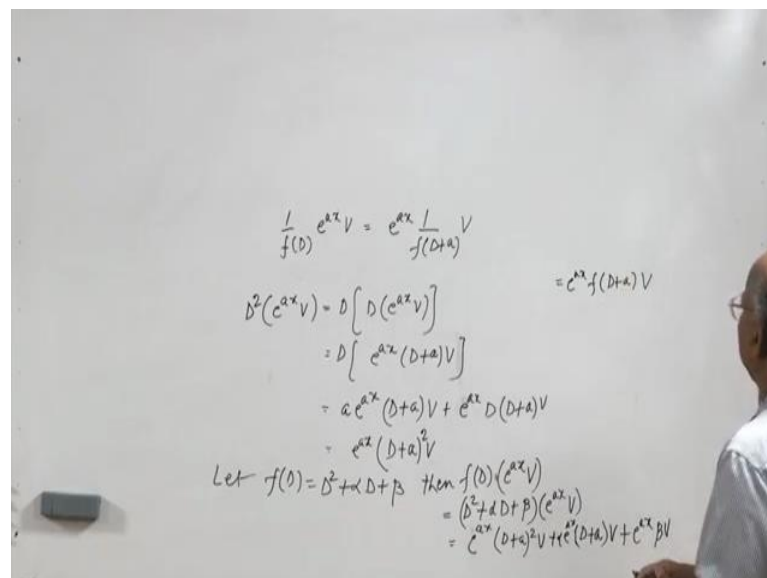 1/f(D) e^{ax} V = e^{ax} 1/f(D+a) V
= e^{ax} f(D+a) V
D²(e^{ax} V) = D[D(e^{ax} V)]
= D[e^{ax} (D+a) V]
= a e^{ax} (D+a) V + e^{ax} D(D+a) V
= e^{ax} (D+a)² V
Let f(D) = D² + αD + β then f(D)(e^{ax} V)
= (D² + αD + β)(e^{ax} V)
= e^{ax} (D+a)² V + α e^{ax} (D+a) V + e^{ax} βV